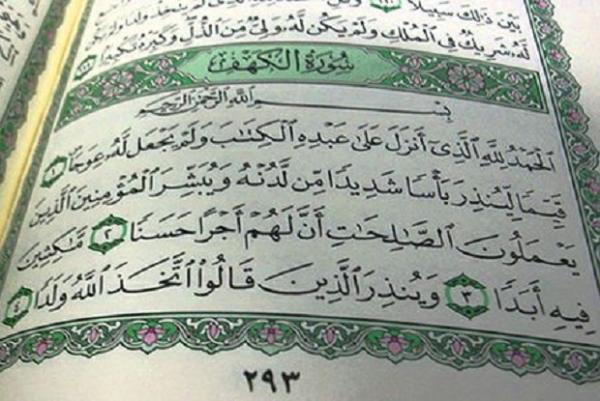 بَيْنَ ذَٰلِكَ سَبِيلًا ١١٠ وَقُلِ
لَّهُۥ شَرِيكٌ فِى ٱلْمُلْكِ وَلَمْ يَكُن لَّهُۥ وَلِىٌّ مِّنَ ٱلذُّلِّ وَكَبِّرْهُ تَكْبِيرًا ١١١
سُورَةُ الْكَهْفِ
بِسْمِ ٱللَّهِ ٱلرَّحْمَٰنِ ٱلرَّحِيمِ
ٱلْحَمْدُ لِلَّهِ ٱلَّذِىٓ أَنزَلَ عَلَىٰ عَبْدِهِ ٱلْكِتَٰبَ وَلَمْ يَجْعَل لَّهُۥ عِوَجَا ١
قَيِّمًا لِّيُنذِرَ بَأْسًا شَدِيدًا مِّن لَّدُنْهُ وَيُبَشِّرَ ٱلْمُؤْمِنِينَ ٱلَّذِينَ
يَعْمَلُونَ ٱلصَّٰلِحَٰتِ أَنَّ لَهُمْ أَجْرًا حَسَنًا ٢ مَّٰكِثِينَ
فِيهِ أَبَدًا ٣ وَيُنذِرَ ٱلَّذِينَ قَالُوا۟ ٱتَّخَذَ ٱللَّهُ وَلَدًا ٤
٢٩٣